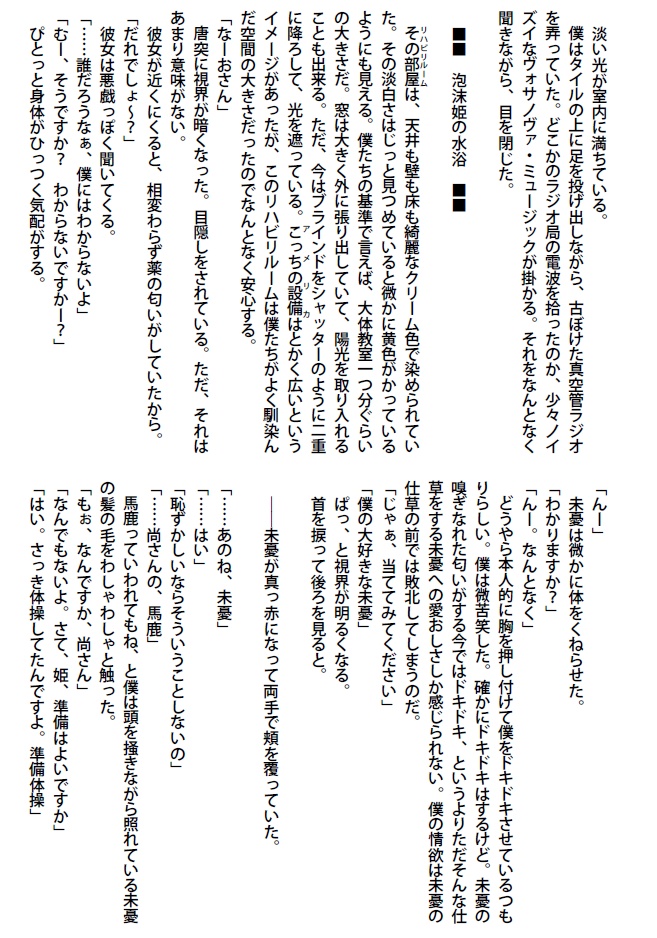 淡い光が室内に満ちている。
僕はタイルの上に足を投げ出しながら、古ぼけた真空管ラジオ
を弄っていた。どこかのラジオ局の電波を拾ったのか、少々ノイ
ズイなヴォサノヴァ・ミュージックが掛かる。それをなんとなく
聞きながら、目を閉じた。
■■　泡沫姫の水浴　■■
リハビリルーム
その部屋は、天井も壁も床も綺麗なクリーム色で染められてい
た。その淡白さはじっと見つめていると微かに黄色がかっている
ようにも見える。僕たちの基準で言えば、大体教室一つ分ぐらい
の大きさだ。窓は大きく外に張り出していて、陽光を取り入れる
ことも出来る。ただ、今はブラインドをシャッターのように二重
アメリカ
に降ろして、光を遮っている。こっちの設備はとかく広いという
イメージがあったが、このリハビリルームは僕たちがよく馴染ん
だ空間の大きさだったのでなんとなく安心する。
「なーおさん」
唐突に視界が暗くなった。目隠しをされている。ただ、それは
あまり意味がない。
彼女が近くにくると、相変わらず薬の匂いがしていたから。
「だれでしょ～？」
彼女は悪戯っぽく聞いてくる。
「……誰だろうなぁ、僕にはわからないよ」
「むー、そうですか？　わからないですかー？」
ぴとっと身体がひっつく気配がする。
「んー」
未憂は微かに体をくねらせた。
「わかりますか？」
「んー。なんとなく」
どうやら本人的に胸を押し付けて僕をドキドキさせているつも
りらしい。僕は微苦笑した。確かにドキドキはするけど。未憂の
嗅ぎなれた匂いがする今ではドキドキ、というよりただそんな仕
草をする未憂への愛おしさしか感じられない。僕の情欲は未憂の
仕草の前では敗北してしまうのだ。
「じゃぁ、当ててみてください」
「僕の大好きな未憂」
ぱっ、と視界が明るくなる。
首を捩って後ろを見ると。
――未憂が真っ赤になって両手で頬を覆っていた。
「……あのね、未憂」
「……はい」
「恥ずかしいならそういうことしないの」
「……尚さんの、馬鹿」
馬鹿っていわれてもね、と僕は頭を掻きながら照れている未憂
の髪の毛をわしゃわしゃと触った。
「もぉ、なんですか、尚さん」
「なんでもないよ。さて、姫、準備はよいですか」
「はい。さっき体操してたんですよ。準備体操」